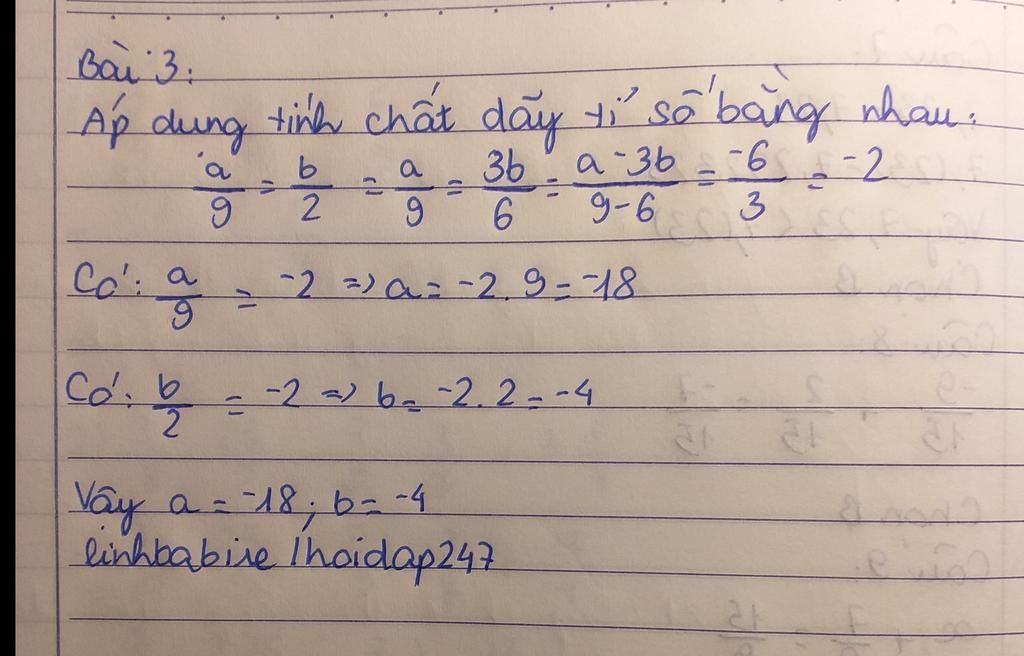 Bài 3:
Áp dung tính chất dãy tỉ số bằng nhau:
a/9 = b/2 = a/9 = 3b/6 = a - 3b/9 - 6 = -6/3 = -2
Có: a/9 = -2 => a = -2. 9 = -18
Có: b/2 = -2 => b = -2. 2 = -4
Vây a = -18; b = -4
linhbabixe / hoidap247